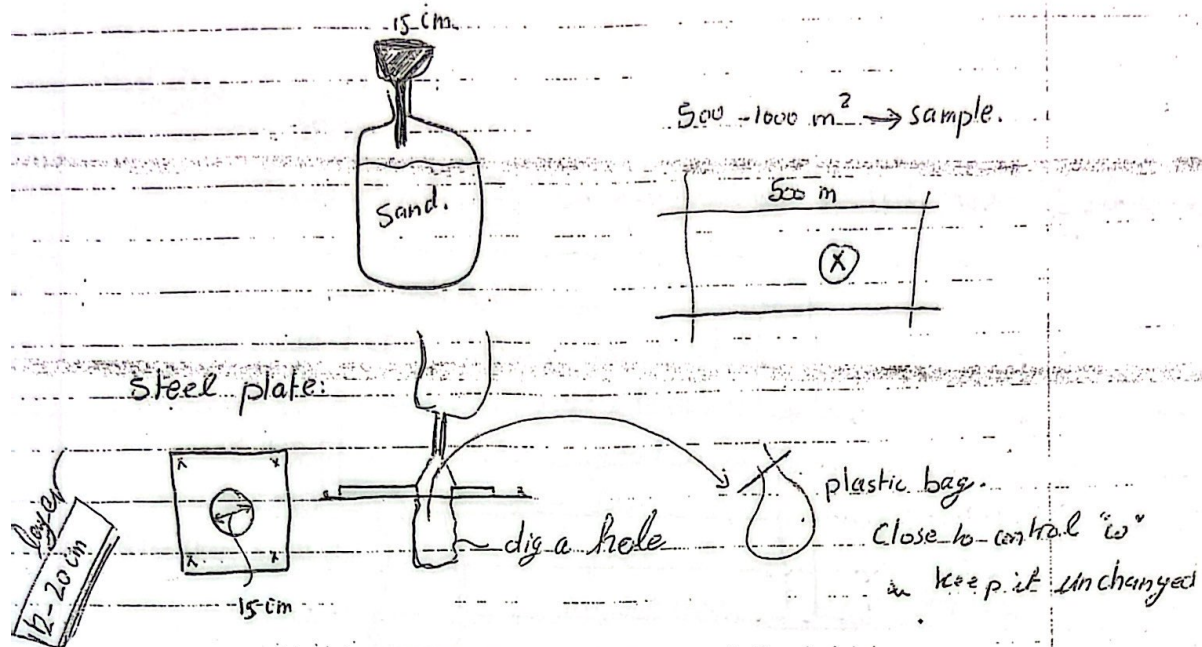 15 cm.
500 - 1000 m² → sample.
Sand.
500 m
X
Steel plate:
layer
20 cm
15 cm
dig a hole
plastic bag.
Close to control "ω"
keep it unchanged